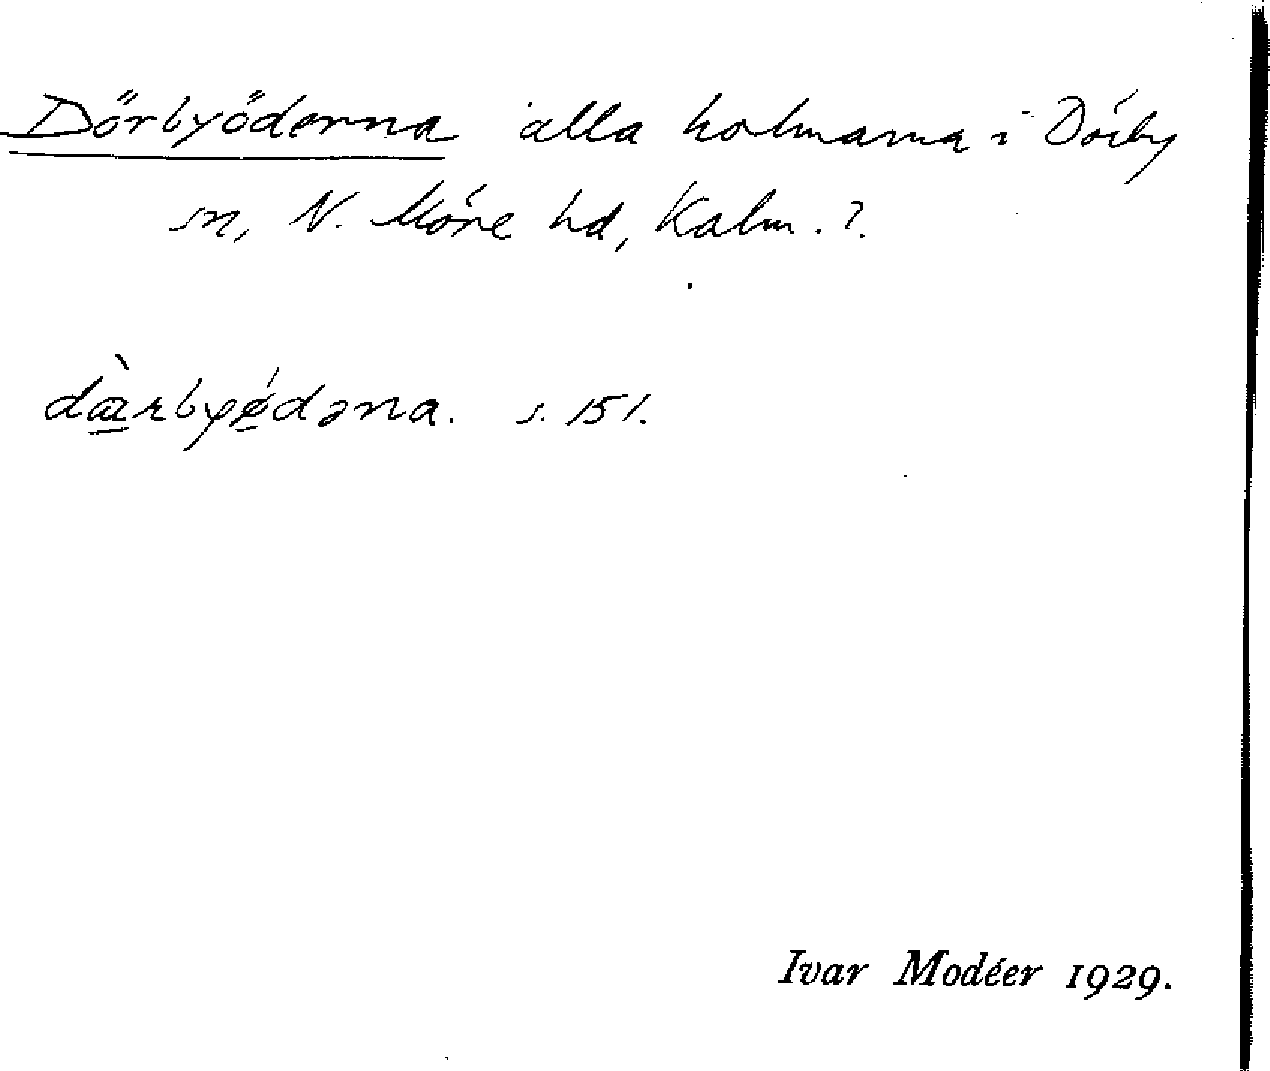 Dörbyöderna alla holmarna i Dörby
sn, N. Möre hd, Kalm. ?.
dæ̀rbyǿdəna. s. 151.
Ivar Modéer 1929.